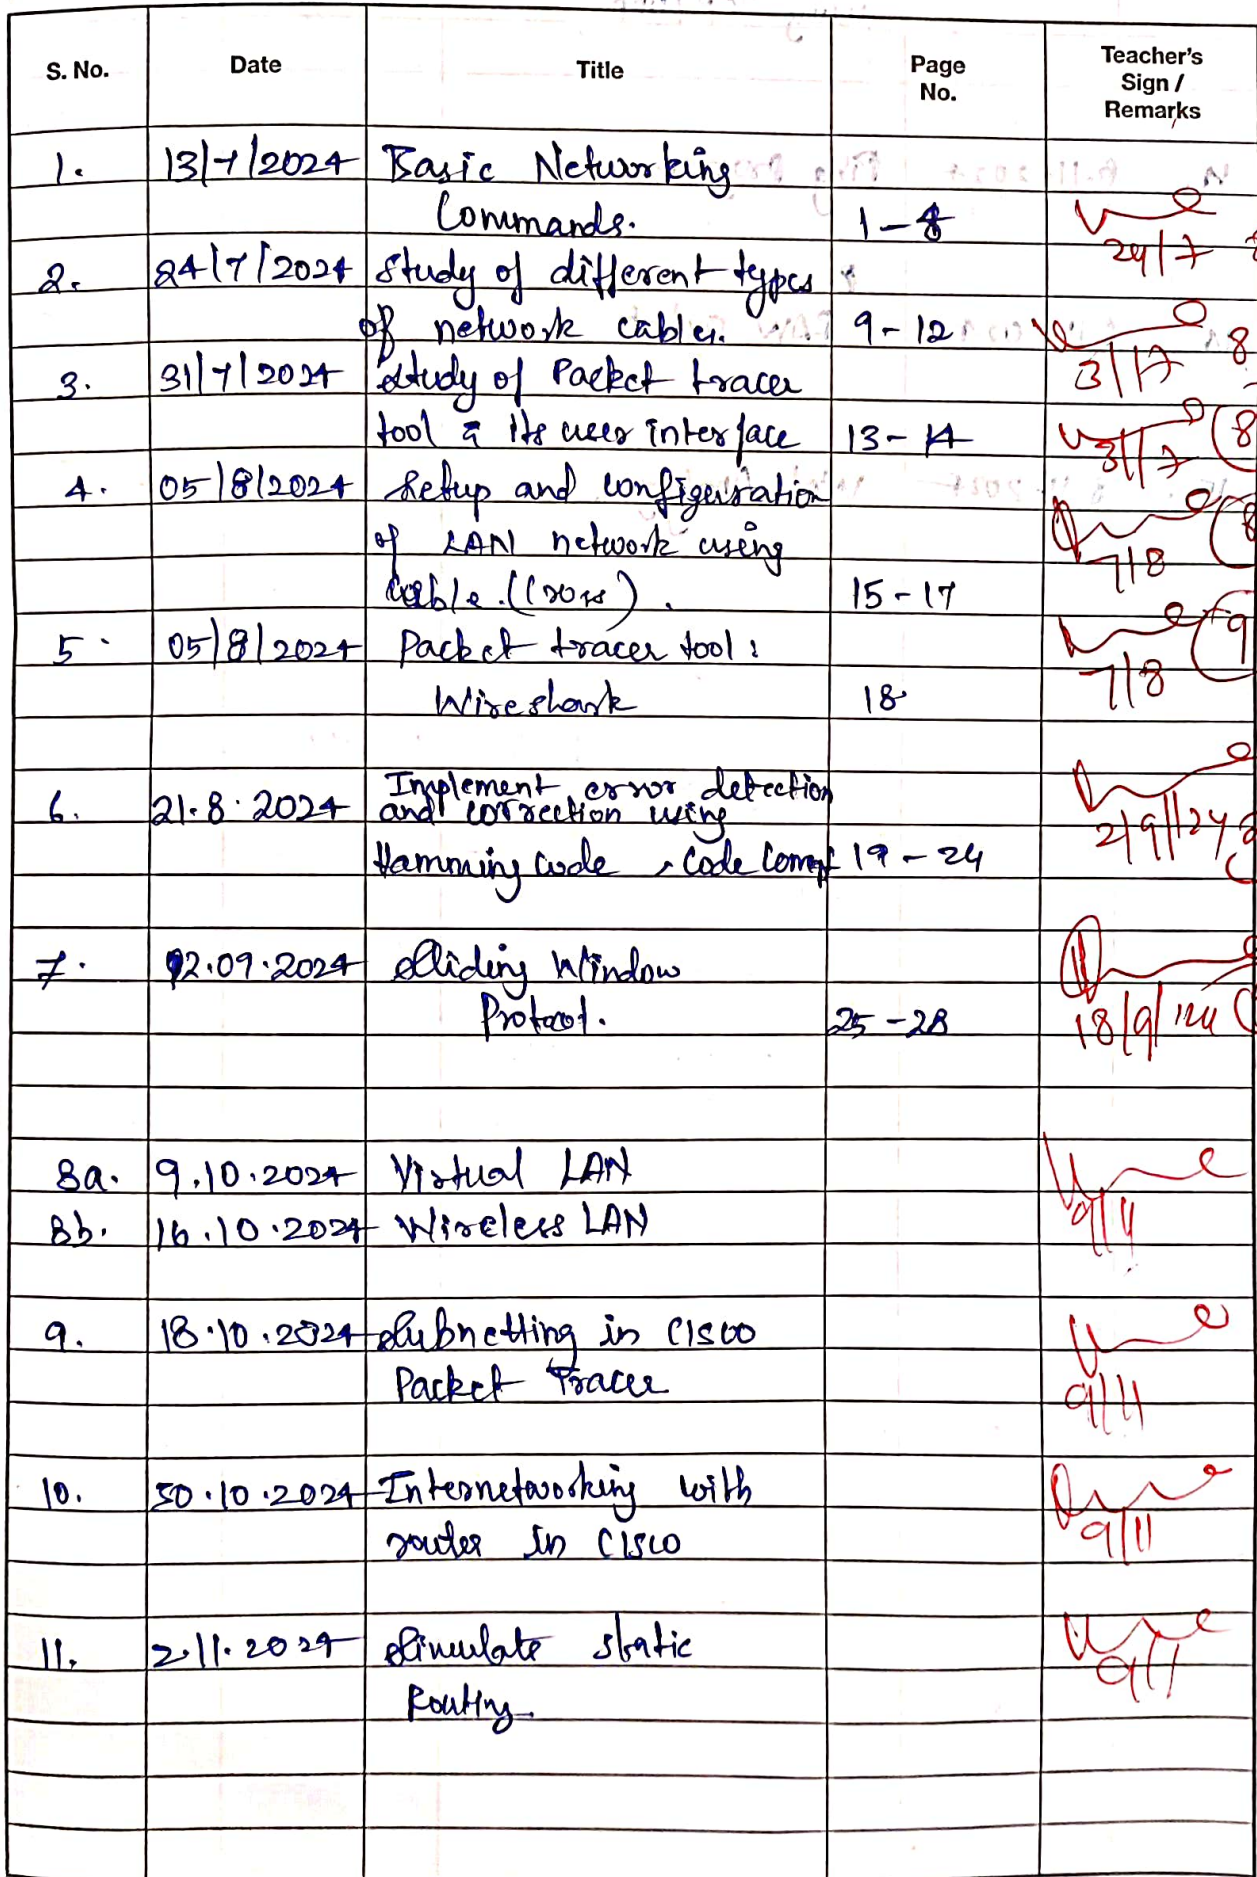 S. No. Date Title Page No. Teacher's Sign / Remarks
1. 13/7/2024 Basic Networking
Commands. 1-8
24/7
2. 24/7/2024 Study of different types
of network cables. 9-12
31/7 8
3. 31/7/2024 Study of Packet tracer
tool & its user interface 13-14
31/7 8
4. 05/8/2024 Setup and configuration
of LAN network using
cable.(Cross). 15-17
7/8 8
5. 05/8/2024 Packet tracer tool:
Wireshark 18
7/8 9
6. 21.8.2024 Implement error detection
and correction using
Hamming code 19-24
2/9/24
7. 02.09.2024 Sliding Window
Protocol. 25-28
18/9/24
8a. 9.10.2024 Virtual LAN
9/11
8b. 16.10.2024 Wireless LAN
9. 18.10.2024 Subnetting in CISCO
Packet Tracer
9/11
10. 30.10.2024 Internetworking with
router in CISCO
9/11
11. 2.11.2024 Simulate static
Routing.
9/11